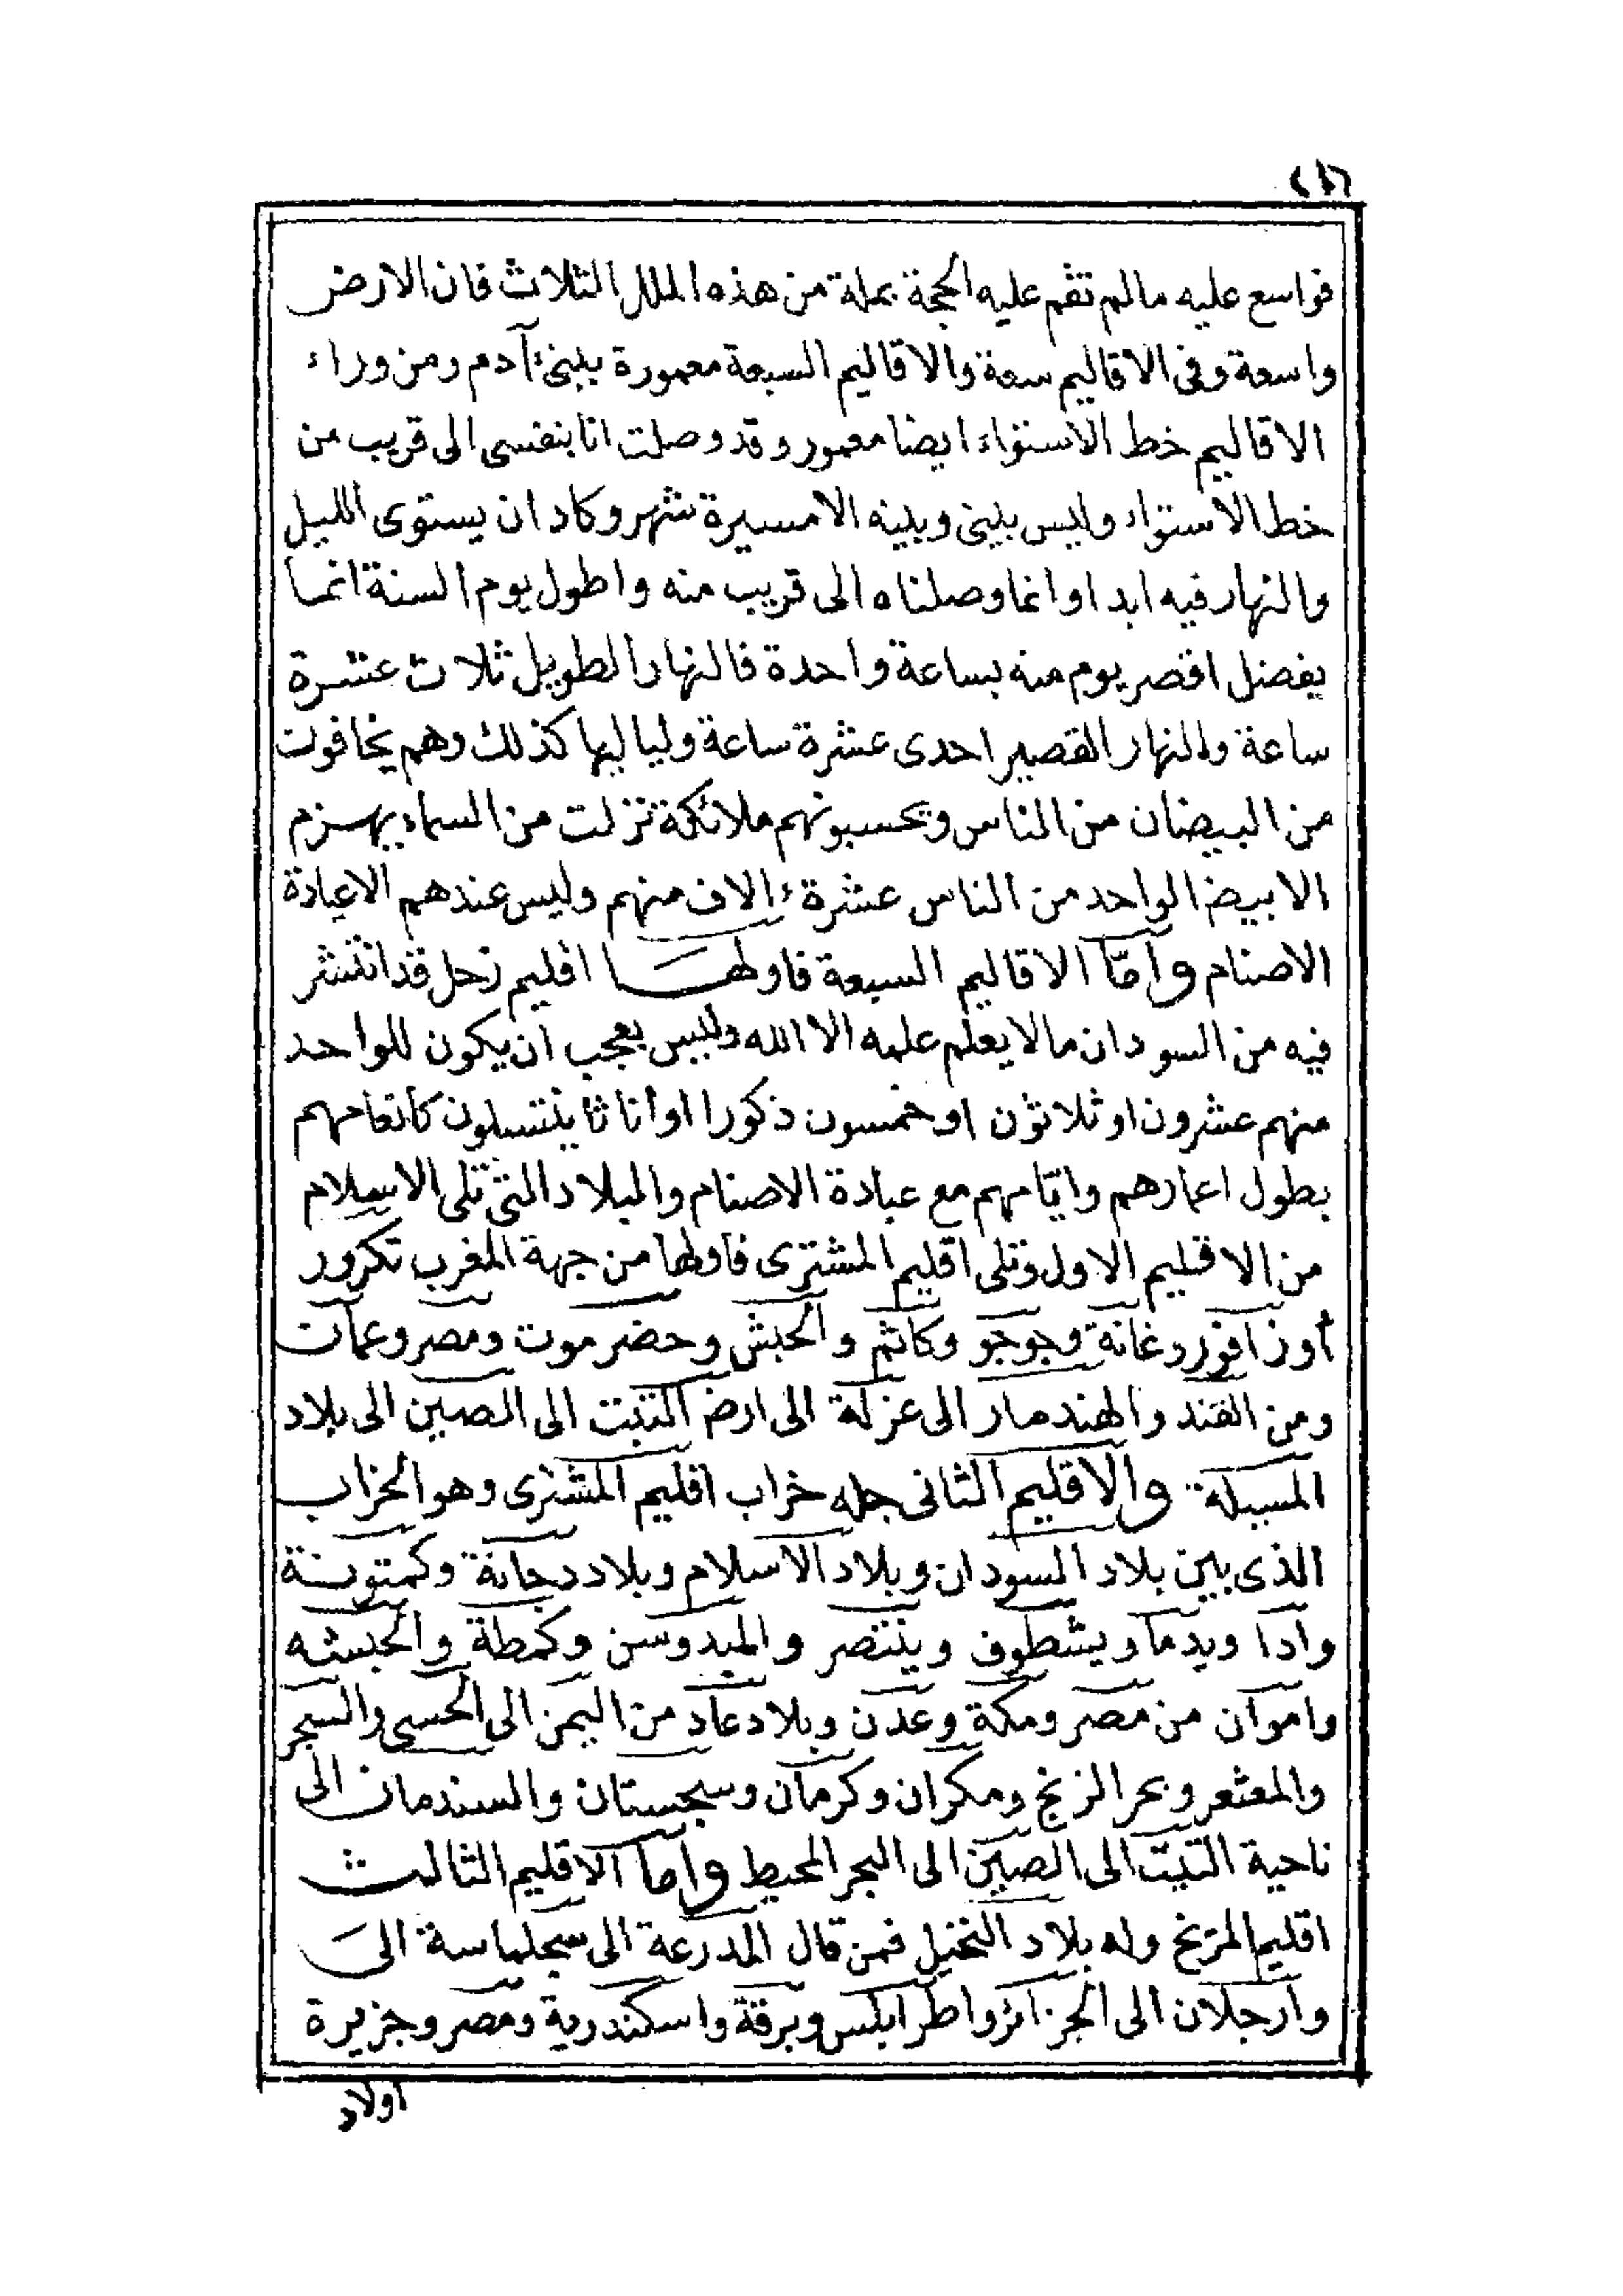 فواسع عليه مالم تقم عليه الحجة بملة من هذه الملل الثلاث فان الارض
واسعة وفى الاقاليم سعة والاقاليم السبعة معمورة ببنىء آدم ومن وراء
الاقاليم خط الاستواء ايضا معمور وقد وصلت انا بنفسى الى قريب من
خط الاستواء وليس بينى وبينه الامسيرة شهر وكاد ان يستوى الليل
والنهار فيه ابدا وانما وصلناه الى قريب منه واطول يوم السنة انما
يفضل اقصر يوم منه بساعة واحدة فالنهار الطويل ثلاث عشرة
ساعة والنهار القصير احدى عشرة ساعة ولياليها كذلك وهم يخافون
من البيضان من الناس ويحسبونهم ملائكة نزلت من السماء يهزم
الابيض الواحد من الناس عشرة ءالاف منهم وليس عندهم الاعبادة
الاصنام وأمّا الاقاليم السبعة فاولها اقليم زحل قد انتشر
فيه من السودان مالا يعلم علمه الا الله وليس بعجب ان يكون للواحد
منهم عشرون او ثلاثون او خمسون ذكورا او أناثا ينتسلون كأنعامهم
بطول اعمارهم وايّامهم مع عبادة الاصنام والبلاد التى تلى الاسلام
من الاقليم الاول وتلى اقليم المشترى فاولها من جهة المغرب تكرور
وغانة وجوجو وكانم والحبش وحضرموت ومصر وعمان
ومن القند والهندمار الى عزلة الى ارض التبت الى الصين الى بلاد
المسيلة والاقليم الثانى جله خراب اقليم المشترى وهو الخراب
الذى بين بلاد السودان وبلاد الاسلام وبلاد دجانة وكمتونة
وادا ويدما ويشطوف وينتصر والبدوسن وكمطة والحبشه
واموان من مصر ومكة وعدن وبلاد عاد من اليمن الى الحسى والسحر
والمعثعر وبحر الزنج ومكران وكرمان وسجستان والسندمان الى
ناحية التبت الى الصين الى البحر المحيط وأما الاقليم الثالث
اقليم المريخ وله بلاد النخيل فمن قال المدرعة الى سجلماسة الى
وارجلان الى الجزائر واطرابلس وبرقة واسكندرية ومصر وجزيرة
اولاد